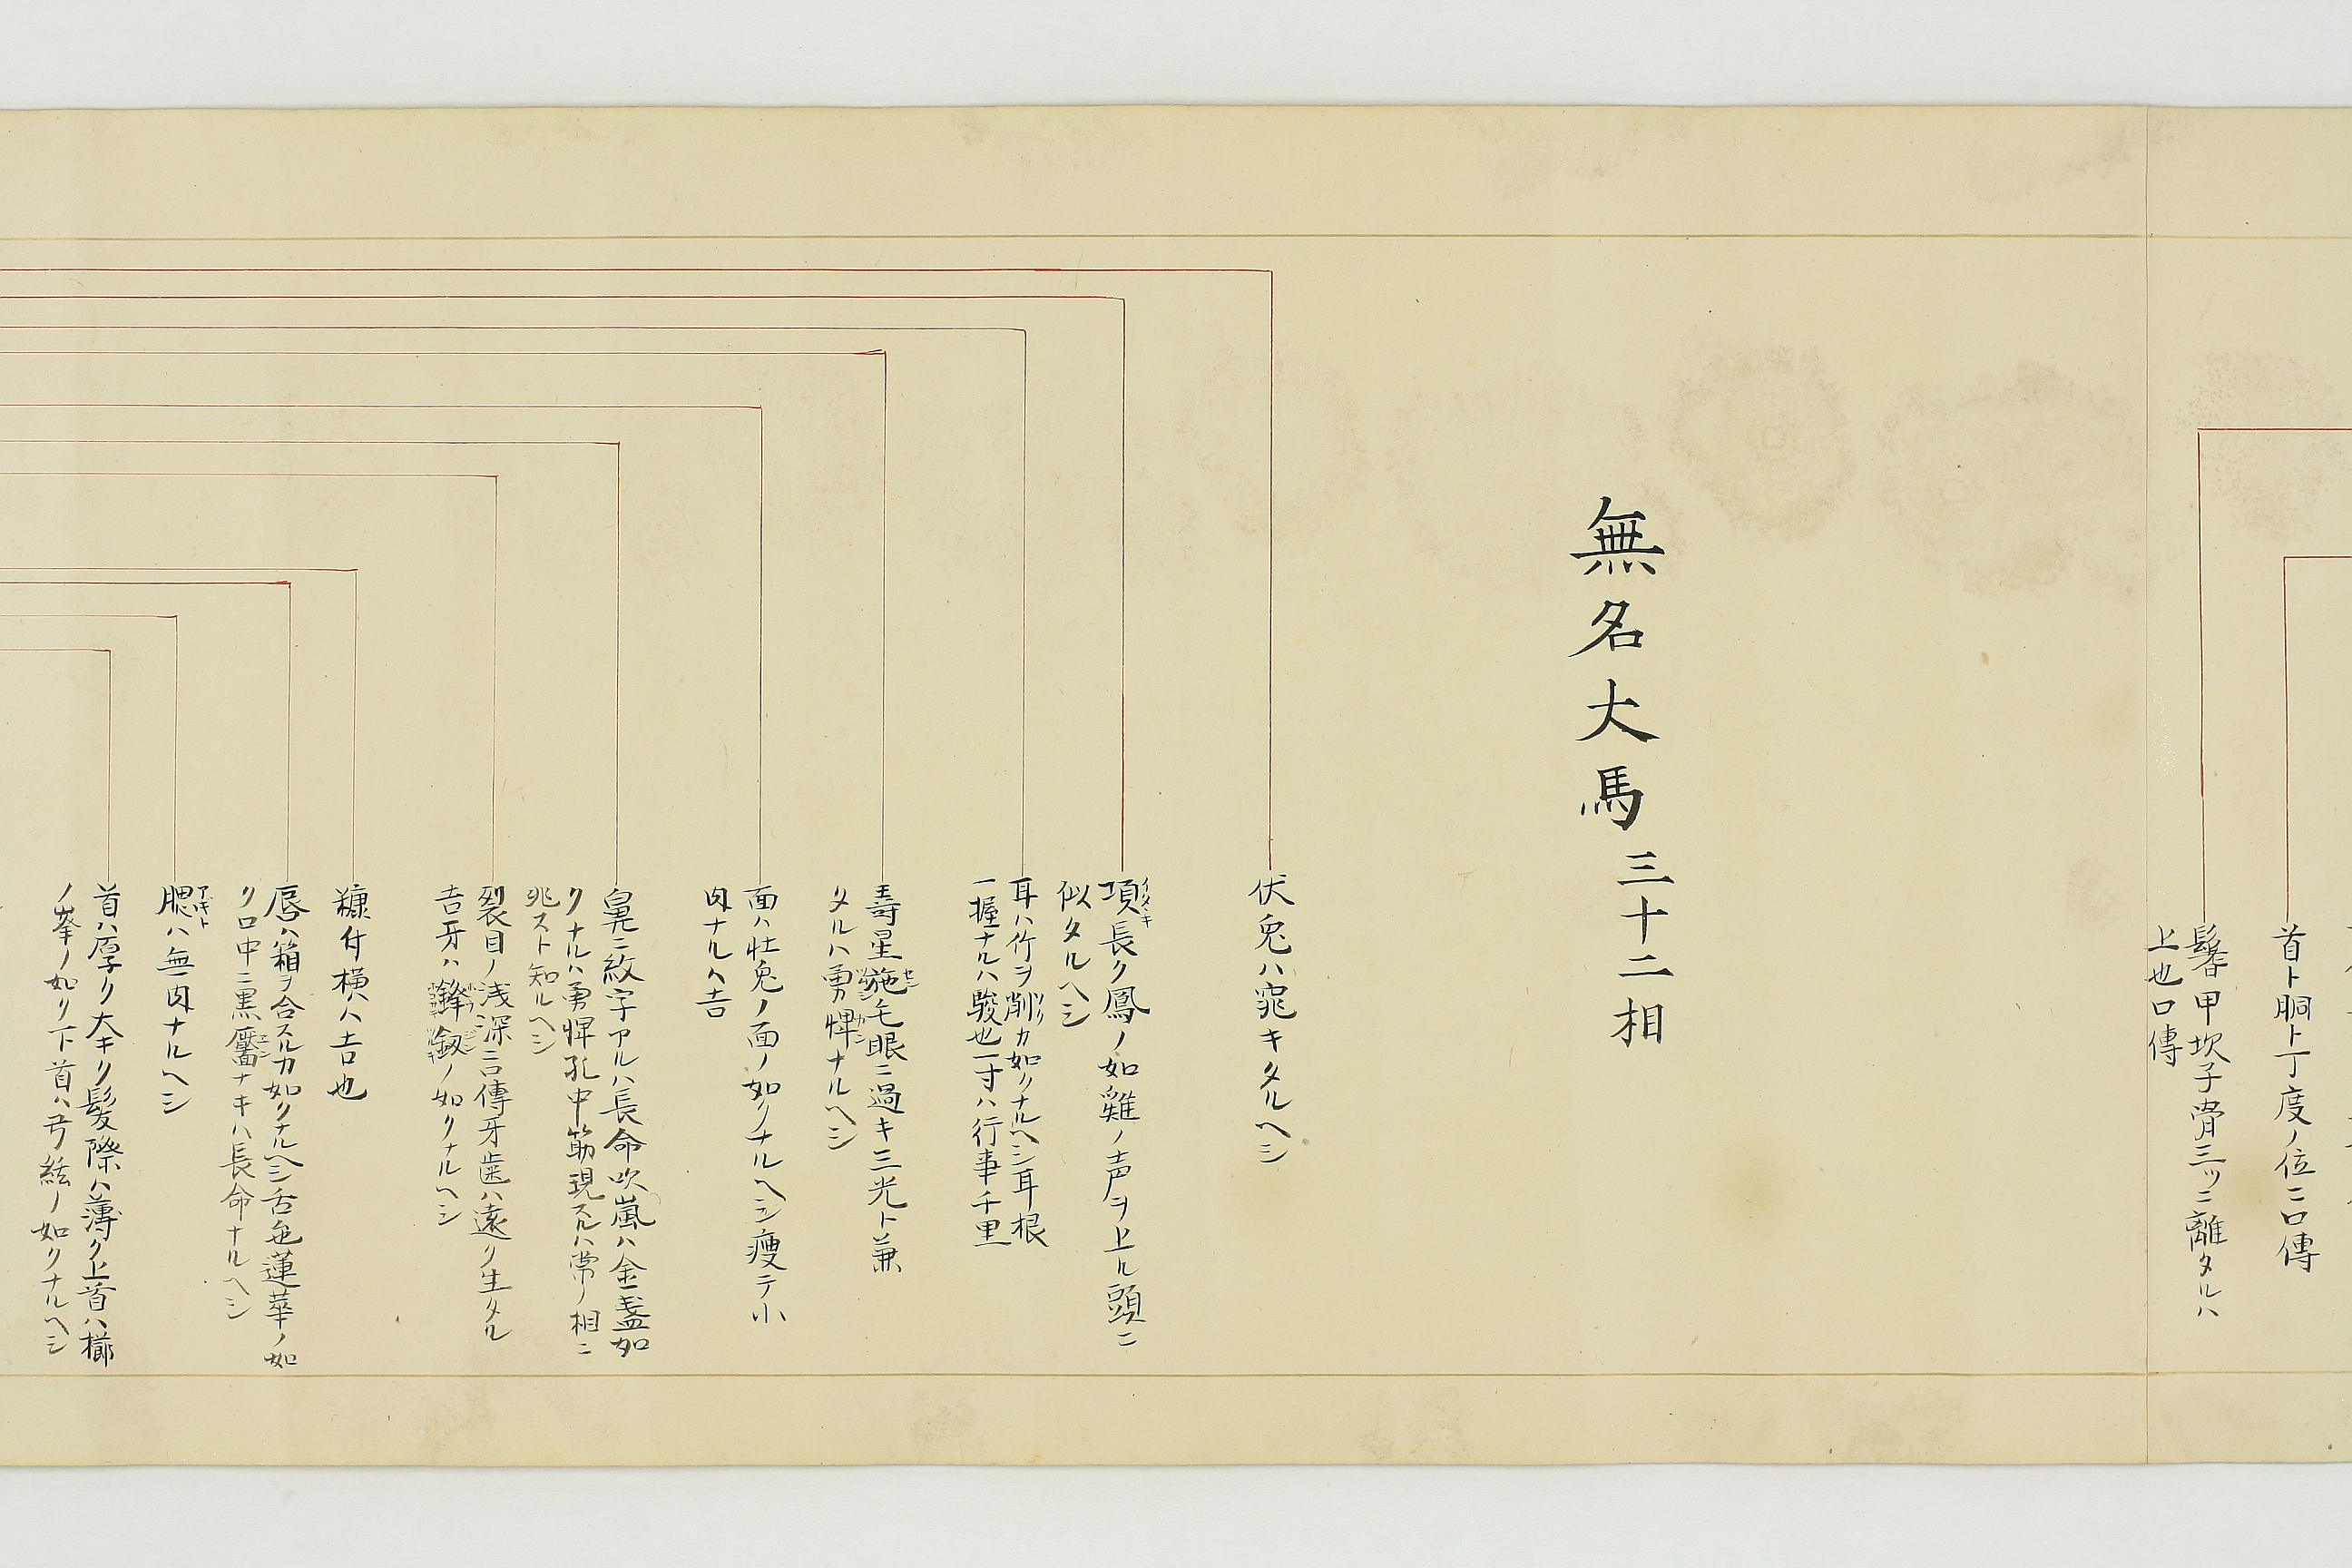 首ト胴ト丁度ノ位ニ口傳
鬐甲坎子骨三ツニ離タルハ
上也口傳
無名大馬三十二相
伏兎ハ窕キタルヘシ
項長ク鳳ノ如雞ノ声ヲ上ル頭ニ
似タルヘシ
耳ハ竹ヲ削カ如クナルヘシ耳根
一握ナルハ駿也一寸ハ行事千里
壽星施毛眼ニ過キ三光ト兼
タルハ勇悍ナルヘシ
面ハ壮兎ノ面ノ如クナルヘシ痩テ小
肉ナルヘ吉
鼻ニ紋字アルハ長命吹嵐ハ金盞如
クナルハ勇悍孔中筋現スルハ常ノ相ニ
兆スト知ルヘシ
裂目ノ浅深ニ口傳牙歯ハ遠ク生タル
吉牙ハ鋒釼ノ如クナルヘシ
糠付横ハ吉也
唇ハ箱ヲ合スルカ如クナルヘシ舌色蓮華ノ如
ク口中ニ黒黶ナキハ長命ナルヘシ
腮ハ無肉ナルヘシ
首ハ厚ク大キク髪際ハ薄ク上首ハ櫛
ノ峯ノ如ク下首ハ弓ノ絃ノ如クナルヘシ